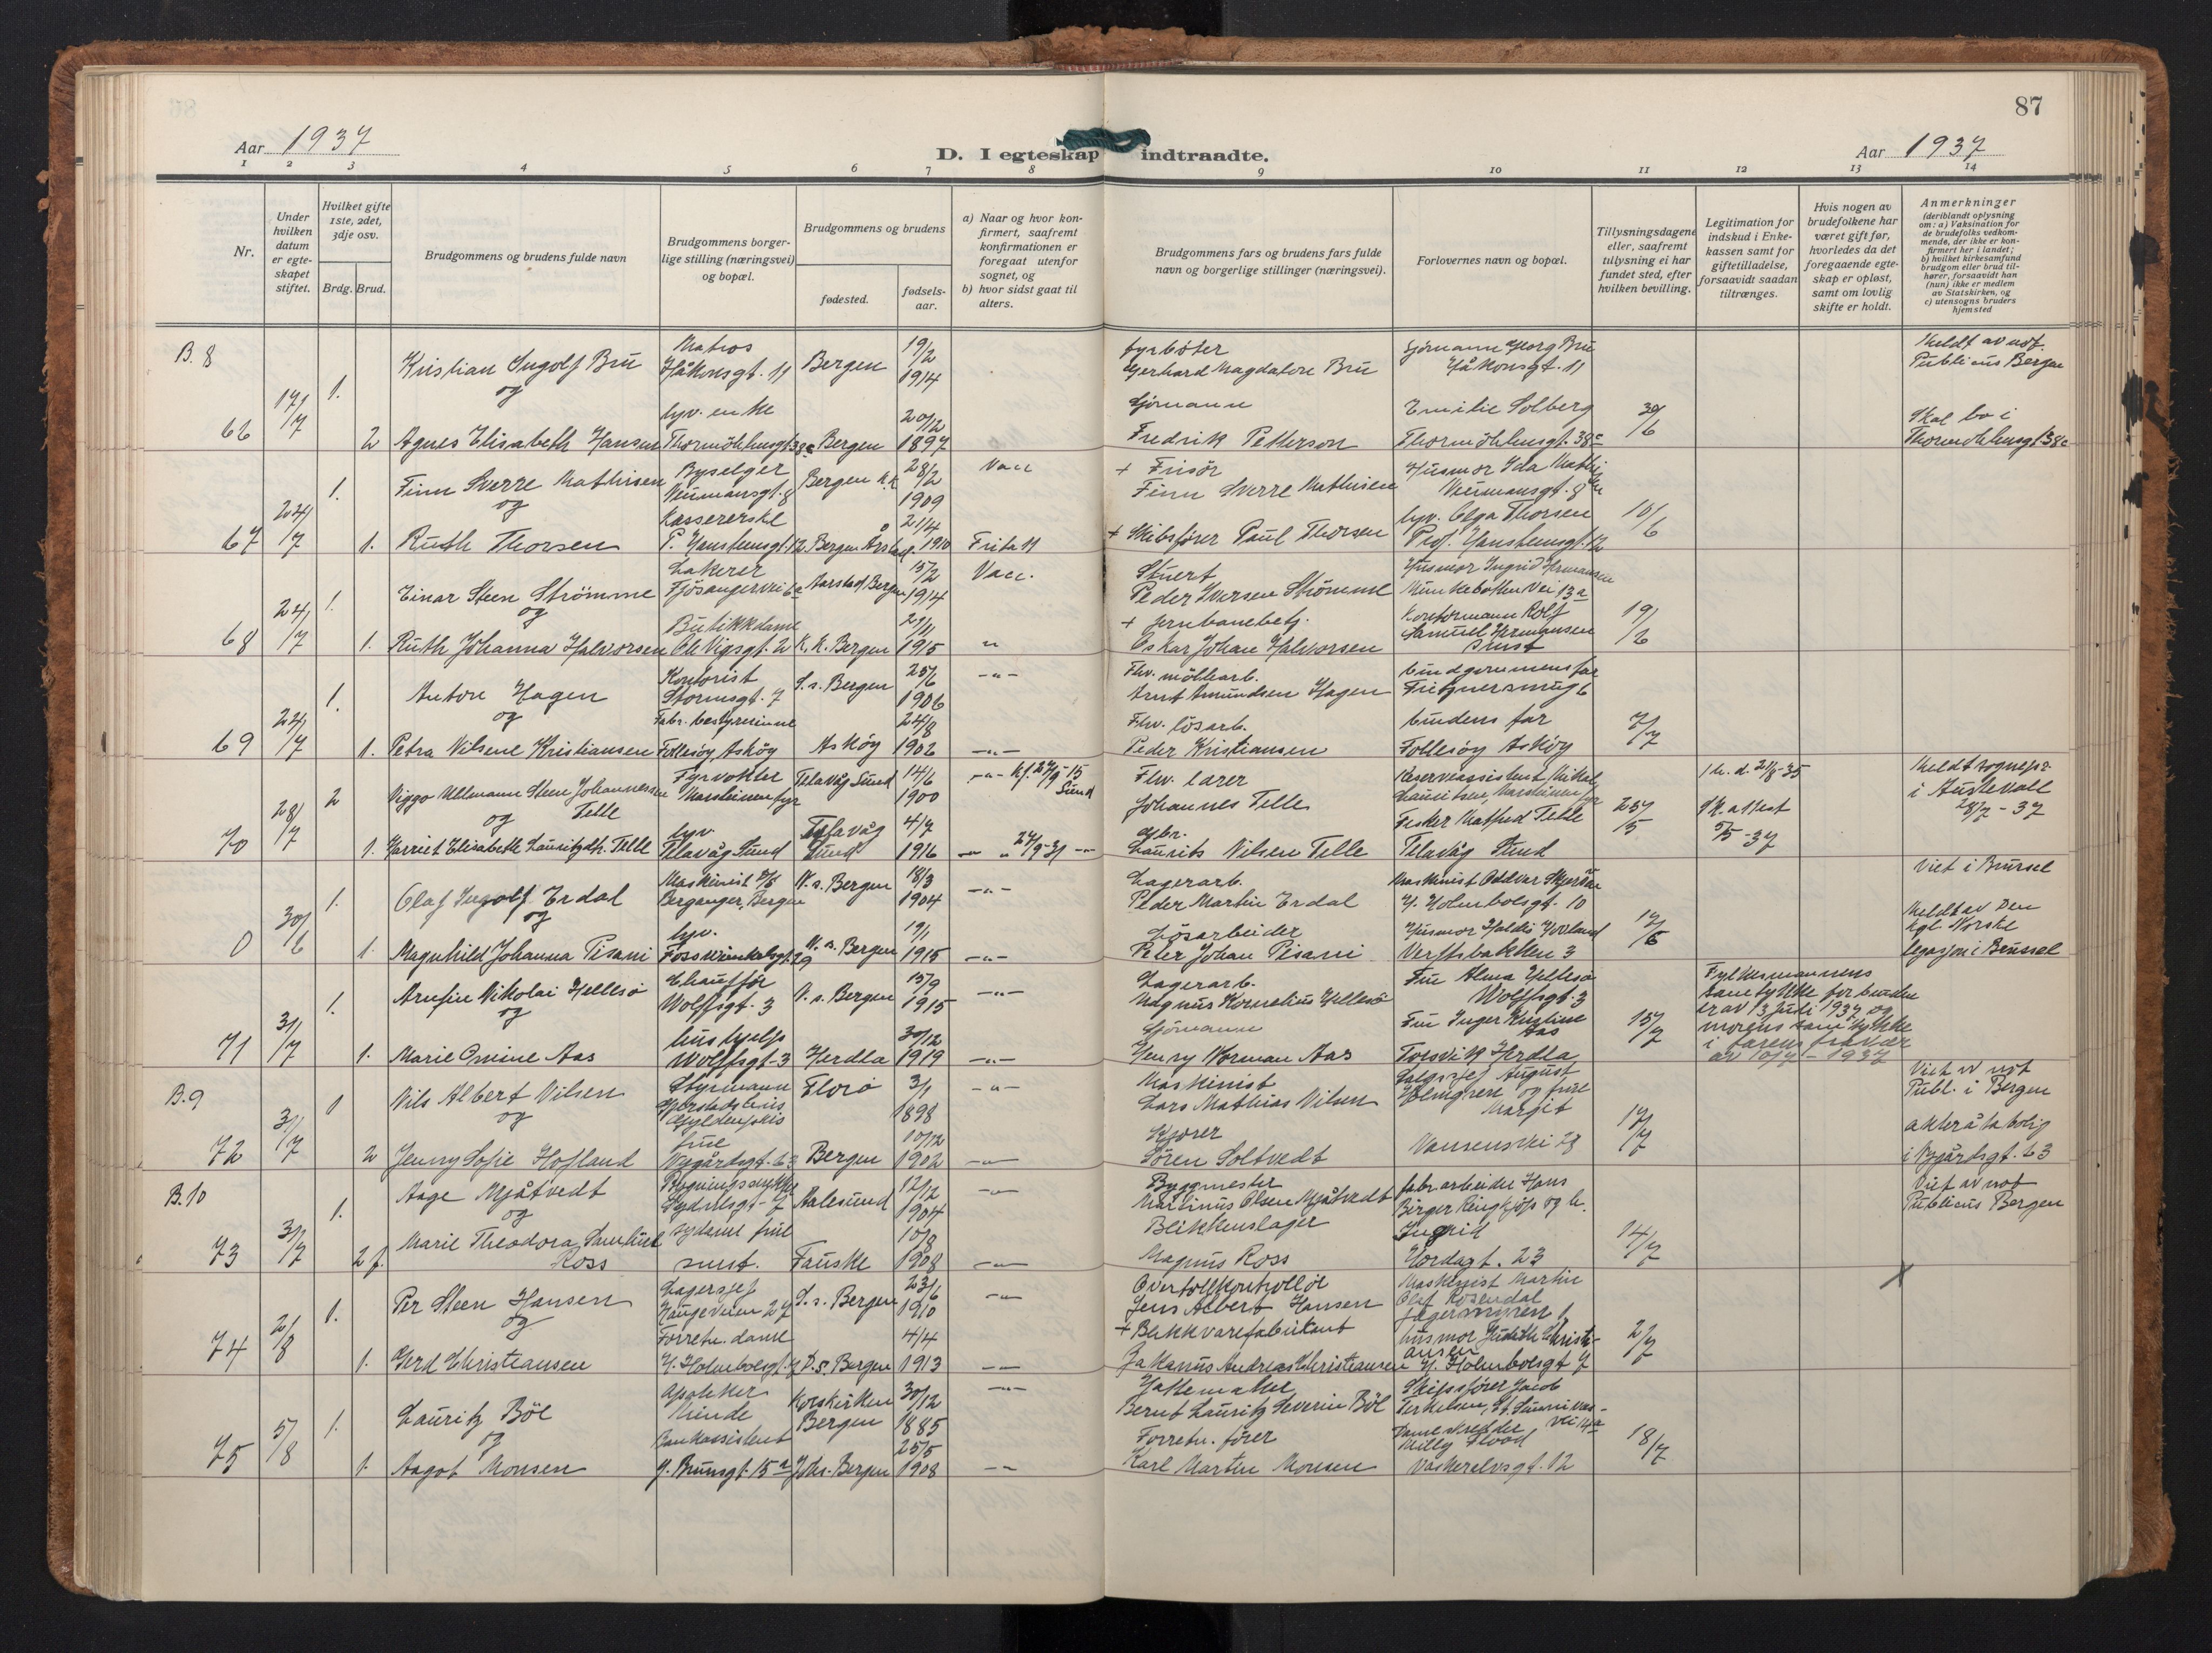 87
Aar 1937
D. I egteskap indtraadte.
Aar 1937
1 2 3 4 5 6 7 8 9 10 11 12 13 14
Nr.
Under hvilken datum er egteskapet stiftet.
Hvilket gifte 1ste, 2det, 3dje osv.
Brdg. Brud.
Brudgommens og brudens fulde navn
Brudgommens borgerlige stilling (næringsvei) og bopæl.
Brudgommens og brudens
fødested.
fødselsaar.
a) Naar og hvor konfirmert, saafremt konfirmationen er foregaat utenfor sognet, og
b) hvor sidst gaat til alters.
Brudgommens fars og brudens fars fulde navn og borgerlige stillinger (næringsvei).
Forlovernes navn og bopæl.
Tillysningsdagene eller, saafremt tillysning ei har fundet sted, efter hvilken bevilling.
Legitimation for indskud i Enkekassen samt for giftetilladelse, forsaavidt saadan tiltrænges.
Hvis nogen av brudefolkene har været gift før, hvorledes da det foregaaende egteskap er opløst, samt om lovlig skifte er holdt.
Anmerkninger
(deriblandt oplysning om: a) Vaksination for de brudefolks vedkommende, der ikke er konfirmert her i landet; b) hvilket kirkesamfund brudgom eller brud tilhører, forsaavidt han (hun) ikke er medlem av Statskirken, og c) utensogns bruders hjemsted
B. 8
66 17/7 1. Kristian Ingolf Bru Matros Håkonsgt. 11 Bergen 19/2 1914 fyrbøter Gerhard Magdalon Bru sjømann Georg Bru Håkonsgt. 11 Meldt av not. Publicus Bergen
og
2 Agnes Elisabeth Hansen Thormöhlensgt 38c Bergen 20/12 1897 Sjømann Fredrik Petterson Emilie Solberg Thormöhlensgt. 38c 30/6 Skal bo i Thormöhlensgt 38c
67 24/7 1. Finn Sverre Mathisen Byselger Neumansgt. 8 Bergen K.K 28/2 1909 Vacc + Frisör Finn Sverre Mathisen Husmor Ida Mathisen Neumansgt. 8
og
1. Ruth Thorsen Kassererske P. Hanstensgt. 12 Bergen Årstad 21/4 1910 Fritatt + Skibsfører Paul Thorsen Olga Thorsen Prof. Hanstensgt. 12 10/6
68 24/7 1. Einar Steen Strömme Lakerer Fjösangervei 6a Aarstad Bergen 15/2 1914 Vacc. Stuert Peder Iversen Strömme Husmor Ingrid Hermansen Munkebotten vei 13a
og
1. Ruth Johanna Halvorsen Butikkdame Ole Vigsgt. 2 K.K. Bergen 1915 + jernbanebetj. Oskar Johan Halvorsen Kontormann Rolf Samuel Hermansen smst 19/6
69 24/7 1. Anton Hagen Kontorist Stormsgt. 7 S.s. Bergen 25/6 1906 Fhv. möllearb. Arnt Amundsen Hagen brudgommens far Fritznersmug 6
og
1. Petra Nilsene Kristiansen Fabr. bestyrerinne Follesøy, Askøy Askøy 24/8 1902 Fhv. lösarb. Peder Kristiansen brudens far Follesøy Askøy 7/7
70 28/7 2 Viggo Ullmann Steen Johannessen Telle Fyrvokter Marsteinen fyr Telavåg Sund 14/6 1900 Kf. 27/9-15 Sund Fhv. lærer Johannes Telle Reserveassistent Mikal Lauritsen, Marsteinen fyr 1 h. d. 21/8-35 Meldt sognepr. i Austevoll 28/7-37
og
1. Harriet Elisabeth Lauritzdtr. Telle Telavåg Sund Telavåg Sund 4/7 1916 27/9-31 Laurits Nilsen Telle Fisker Matfred Telle Telavåg Sund 25/5 sk. attest 5/5-37
0 30/6 1. Olaf Ingolf Erdal Maskinist D/S Berganger, Bergen N.s. Bergen 18/3 1904 Lagerarb. Peder Martin Erdal Maskinist Oddvar H. Holmboesgt. 10 Viet i Brüssel
og
1. Magnhild Johanna Pisani Fosswinckelsgt. 19 N.s. Bergen 19/1 1915 Lösarbeider Peter Johan Pisani Husmor Verftsbakken 3 17/6 Meldt av Den kgl. Norske legasjon i Brüssel
71 31/7 1. Arnfin Nikolai Hellesö Chauffør Wolffsgt. 3 N.s. Bergen 15/9 1915 Lagerarb. Magnus Kornelius Hellesö Fru Alma Hellesö Wolffsgt. 3
og
1. Marie Omine Aas hushjelp Wolffsgt. 3 Herdla 30/12 1919 Sjømann Henry Norman Aas Fru Inger Kristine Aas Torsvik Herdla 15/7 Fylkesmannens samtykke for bruden er av 13 Juli 1937 og morens samtykke i farens fravær av 10/7-1937
B. 9
72 31/7 1 Nils Albert Nilsen Styrmann Florö 3/1 1898 Maskinist Lars Mathias Nilsen August Holmgren og frue Margit Viet av not Publ. i Bergen
og
2 Jenny Sofie Hofland frue Nygårdsgt. 63 Bergen 10/12 1902 Kjører Sören Soltvedt Nansensvei 28 17/7 akter å ta bolig i Nygårdsgt. 63
B. 10
73 31/7 1. Aage Mjåtvedt Aalesund 12/12 1904 Byggmester Martinus Olsen Mjåtvedt fabr. arbeider Hans Birger Ringkjöp og h. Ingrid Viet av not Publicus Bergen
og
2 f. Marie Theodora Ross sydame frue smst. Fauske 10/8 1908 Blikkenslager Magnus Ross Hordagt. 23 14/7
74 2/8 1. Per Steen Hansen Lagersjef Haugeveien 27 S.s. Bergen 23/6 1910 Overtollkontrollör Jens Albert Hansen Maskinist Martin Olaf Rosendal Jægermyren 1
og
1. Gerd Christiansen Forretn. dame H. Holmboesgt. 7 D.s. Bergen 4/4 1913 + Blikkvarefabrikant Andreas Christiansen husmor Judith Christiansen H. Holmboesgt 7 2/7
75 5/8 1. Lauritz Böe Apoteker Minde Korskirken Bergen 30/12 1885 Bernt Lauritz Severin Böe Skipsfører Jacob Terkelsen, St. Sunnivas vei 14a
og
1. Aagot Monsen Bankassistent J. Brunsgt. 15a Johs. Bergen 25/5 1908 Forretn. fører Karl Martin Monsen Milly Flood Vaskerelvsgt. 12 18/7